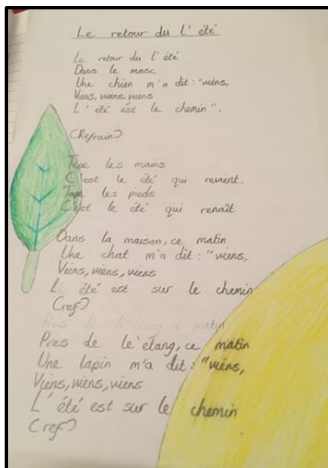 Le retour du l'été
Le retour du l'été
Dans le masc
Une chien m'a dit: "viens,
Viens, viens viens
L'été est le chemin".
(Refrain)
Tape les mains
C'est le été qui revient.
Tape les pieds
C'est le été qui renaît
Dans la maison, ce matin
Une chat m'a dit: "viens,
Viens, viens, viens
Le été est sur le chemin
(ref)
Près de le étang, ce matin
Près de le'étang, ce matin
Une lapin m'a dit: "viens,
Viens, viens, viens
L'été est sur le chemin
(ref)